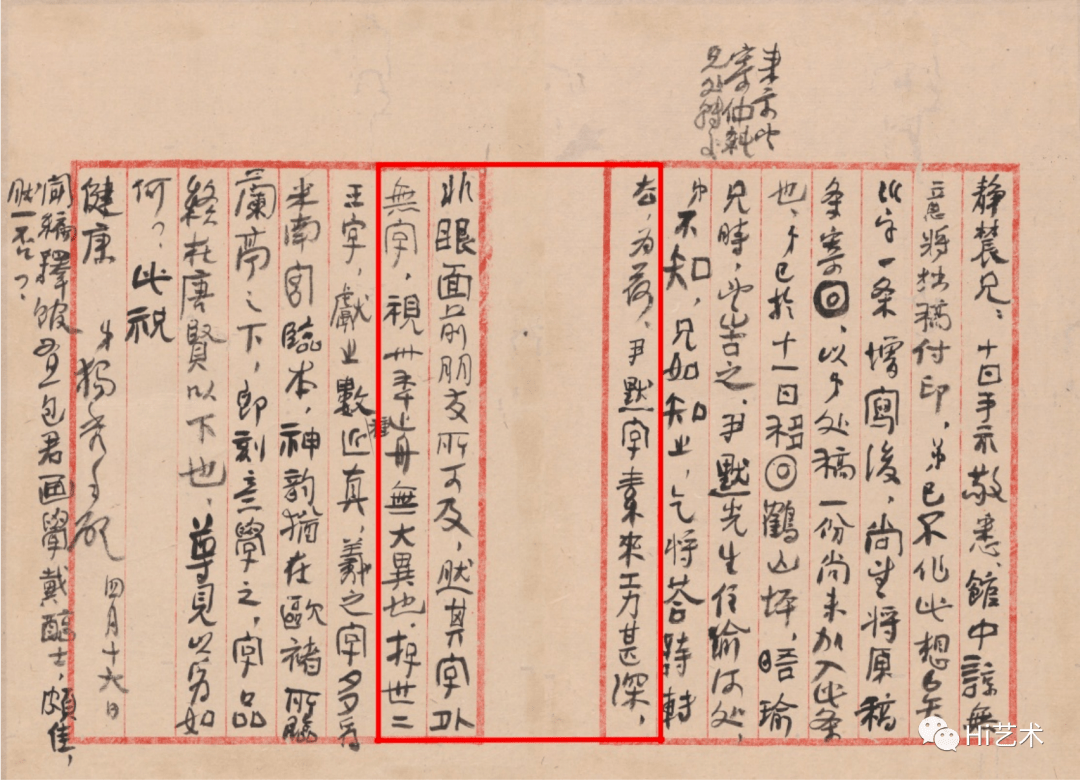 静農兄：十日手示敬悉、館中諒無
意將拙稿付印，弟已不作此想矣
以字一条增寫後，尚望將原稿
条寄回、以弟处稿一份尚未加入此条
也，弟已於十一日移回鶴山坪，晤瑜
兄時，望告之，尹默先生住渝何处，
弟不知，兄如知之，乞將荅詩轉
去，为荷，尹默字素來工力甚深，
非眼面前朋友所可及，然其字外
無字，視卅年前無大異也，存世二
王字，獻之數種近真，羲之字多为
米南宮臨本，神韵猶在歐褚所臨
蘭亭之下，即刻意學之，字品
終在唐賢以下也，尊見以为如
何？此祝
健康 弟獨秀手啟 四月十六日
聞編譯館有包君画學戴醇士，頗佳，
然一否？
来示
寄仲純
兄处轉
Hi艺术